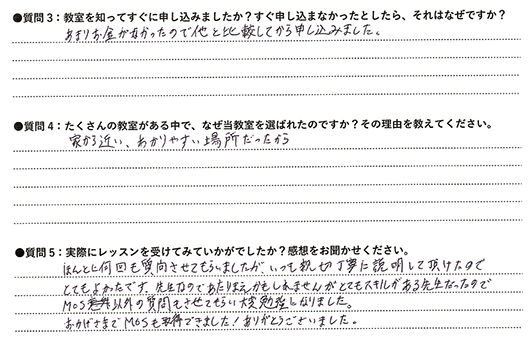 ●質問3：教室を知ってすぐに申し込みましたか？すぐ申し込まなかったとしたら、それはなぜですか？
あまりお金がなかったので他と比較してから申し込みました。
●質問4：たくさんの教室がある中で、なぜ当教室を選ばれたのですか？その理由を教えてください。
家から近い、わかりやすい場所だったから
●質問5：実際にレッスンを受けてみていかがでしたか？感想をお聞かせください。
ほんとに何回も質問させてもらいましたが、いつも親切丁寧に説明して頂けたので
とてもよかったです。先生なのであたりまえかもしれませんがとてもスキルがある先生だったので
MOS以外の質問もさせてもらい大変勉強になりました。
おかげさまでMOSも取得できました！ありがとうございました。